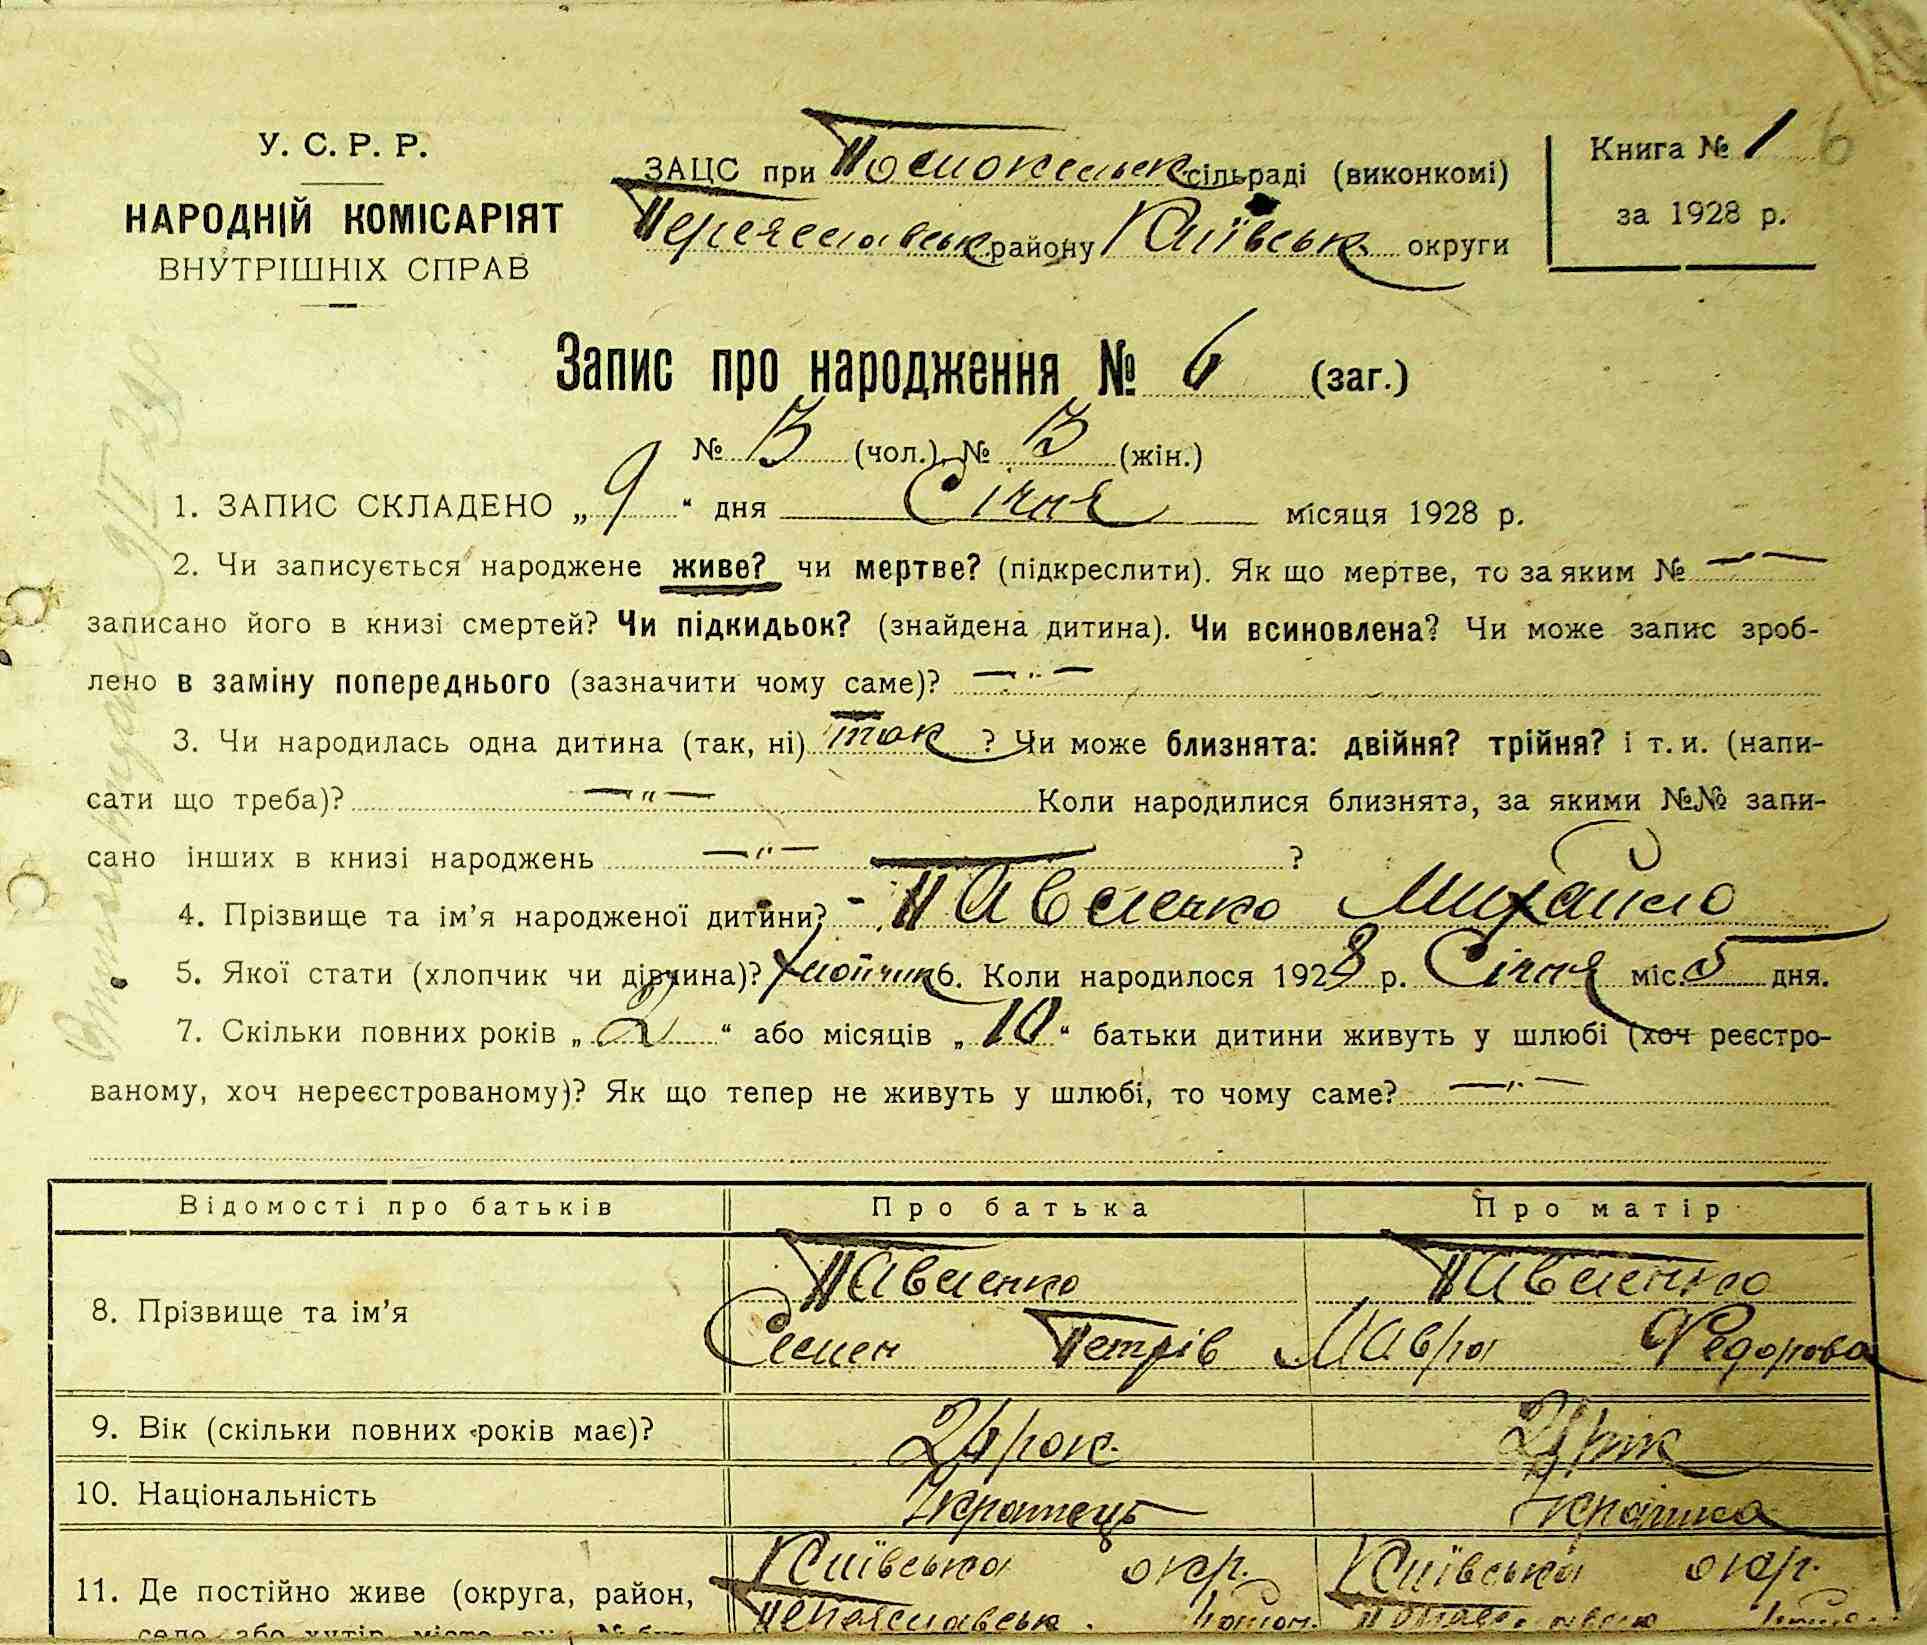 У. С. Р. Р.
НАРОДНІЙ КОМІСАРІЯТ
ВНУТРІШНІХ СПРАВ
ЗАЦС при Помокельск сільраді (виконкомі)
Переяславськ району Київськ. округи
Книга № 1 6
за 1928 р.
Запис про народження № 6 (заг.)
№ 3 (чол.), № 3 (жін.)
1. ЗАПИС СКЛАДЕНО „ 9 “ дня Січня місяця 1928 р.
2. Чи записується народжене живе? чи мертве? (підкреслити). Як що мертве, то за яким № —"—
записано його в книзі смертей? Чи підкидьок? (знайдена дитина). Чи всиновлена? Чи може запис зроб-
лено в заміну попереднього (зазначити чому саме)? —"—
3. Чи народилась одна дитина (так, ні) так ? Чи може близнята: двійня? трійня? і т. и. (напи-
сати що треба)? —"— Коли народилися близнята, за якими №№ запи-
сано інших в книзі народжень —"— ?
4. Прізвище та ім’я народженої дитини? - Павленко Михайло
5. Якої стати (хлопчик чи дівчина)? Хлопчик 6. Коли народилося 1928 р. Січня міс. 5 дня.
7. Скільки повних років „ 2 “ або місяців „ 10 “ батьки дитини живуть у шлюбі (хоч реєстро-
ваному, хоч нереєстрованому)? Як що тепер не живуть у шлюбі, то чому саме? —"—
Відомості про батьків Про батька Про матір
8. Прізвище та ім’я Павленко Павленко
Семен Петрів Мавра Федорова
9. Вік (скільки повних років має)? рок. рік
10. Національність Українець Українка
Київська окр. Київська окр.
11. Де постійно живе (округа, район, Переяславськ.
село або хутір, місто